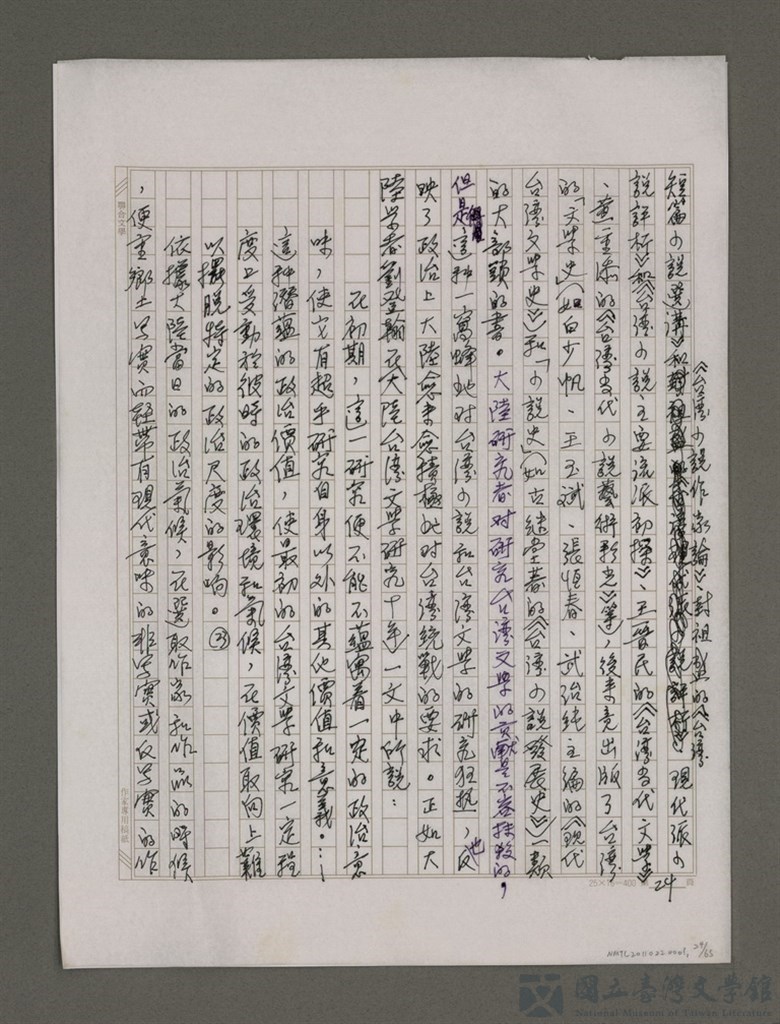 《台湾小說作家論》封祖盛的《台湾
短篇小說選講》和
現代派小
說評析》和《台湾小說主要流派初探》、王晋民的《台湾当代文学》
、黄重添的《台湾当代小說藝術彩光》等,後来竟出版了台湾
的「文学史」(如白少帆、王玉斌、張恒春、武治純主編的《現代
台湾文学史》)和「小說史」(如古継堂著的《台湾小說發展史》)一類
的大部頭的書。大陸研究者对研究台湾文学的貢獻是不容抹殺的,
但是這种一窩蜂地对台湾小說和台湾文学的研究狂热,也反
映了政治上大陸愈来愈積極地对台湾統戰的要求。正如大
陸学者劉登翰在大陸台湾文学研究十年一文中所說:
在初期,這一研究便不能不蘊寓着一定的政治意
味,使它有超乎研究自身以外的其他價值和意義。…
這种潜蘊的政治價值,使最初的台湾文学研究一定程
度上受動於彼時的政治環境和氣候,在價值取向上難
以擺脫特定的政治尺度的影响。㉓
依據大陸當日的政治氣候,在選取作家和作品的時候
,便重鄉土写實而輕帶有現代意味的非写實或反写實的作
24
聯合文學
作家專用稿紙
25×16=400
NMTL20110220001, 24/65
國立臺灣文學館
National Museum of Taiwan Literature